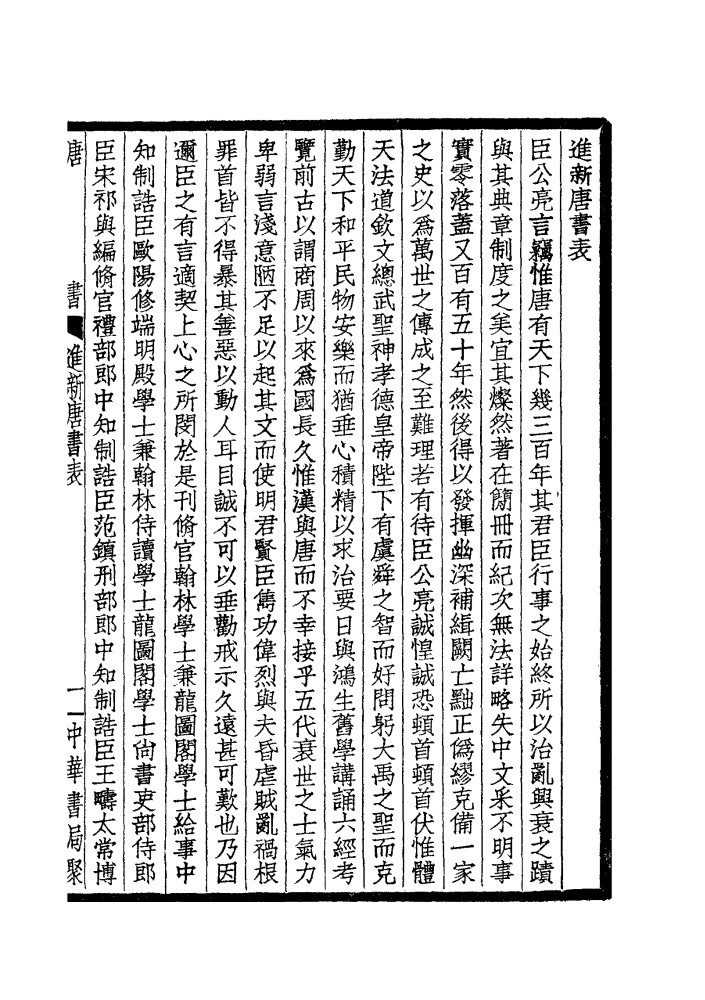 進新唐書表
臣公亮言竊惟唐有天下幾三百年其君臣行事之始終所以治亂興衰之蹟
與其典章制度之美宜其燦然著在簡冊而紀次無法詳略失中文采不明事
實零落蓋又百有五十年然後得以發揮幽深補緝闕亡黜正偽繆克備一家
之史以為萬世之傳成之至難理若有待臣公亮誠惶誠恐頓首頓首伏惟體
天法道欽文總武聖神孝德皇帝陛下有虞舜之智而好問躬大禹之聖而克
勤天下和平民物安樂而猶垂心積精以求治要日與鴻生舊學講誦六經考
覽前古以謂商周以來為國長久惟漢與唐而不幸接乎五代衰世之士氣力
卑弱言淺意陋不足以起其文而使明君賢臣儁功偉烈與夫昏虐賊亂禍根
罪首皆不得暴其善惡以動人耳目誠不可以垂勸戒示久遠甚可歎也乃因
邇臣之有言適契上心之所閔於是刊脩官翰林學士兼龍圖閣學士給事中
知制誥臣歐陽修端明殿學士兼翰林侍讀學士龍圖閣學士尙書吏部侍郎
臣宋祁與編脩官禮部郎中知制誥臣范鎮刑部郎中知制誥臣王疇太常博
唐書 進新唐書表 一 中華書局聚